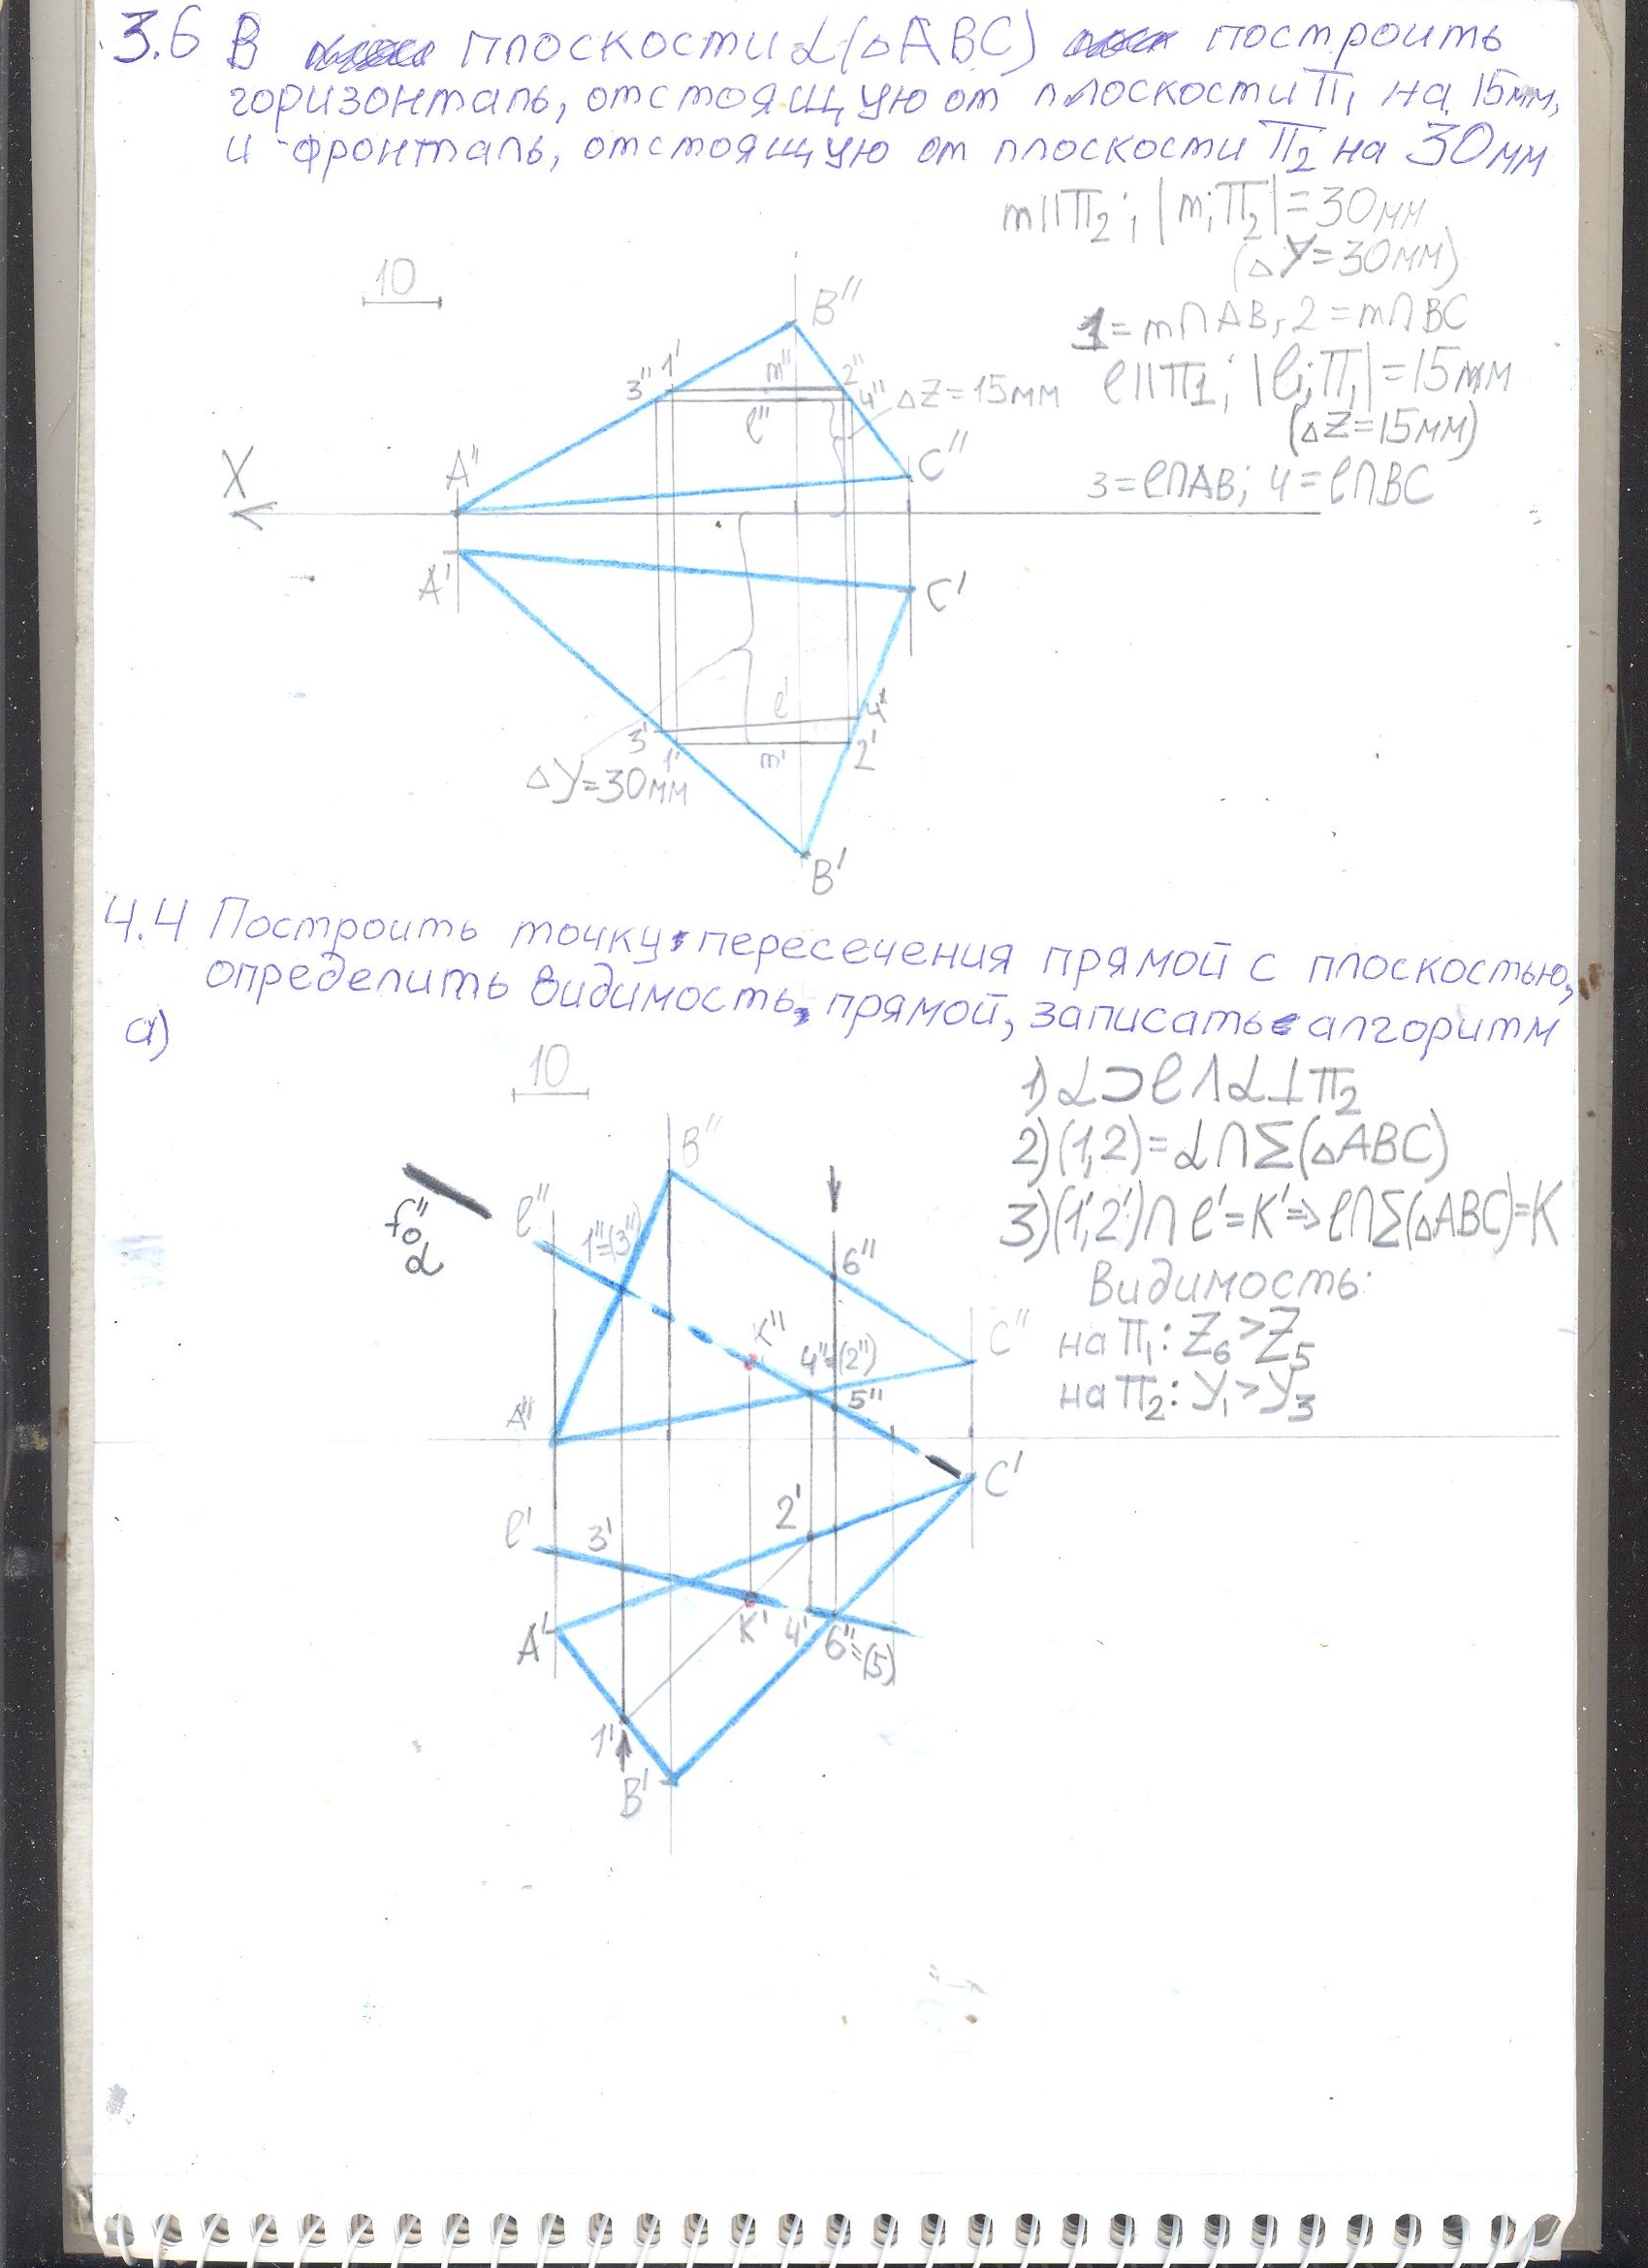 3.6 В плоскости α(△ABC) построить
горизонталь, отстоящую от плоскости П₁ на 15мм,
и фронталь, отстоящую от плоскости П₂ на 30мм
m||П₂; |m;П₂|=30мм
(△Y=30мм)
1=m∩AB; 2=m∩BC
l||П1; |l;П₁|=15мм
(△Z=15мм)
3=l∩AB; 4=l∩BC
10
B''
3'' 1' m'' 2''
l'' 4'' △Z=15мм
X A'' C''
A' C'
l' 4'
3' 1' m' 2'
△Y=30мм
B'
4.4 Построить точку пересечения прямой с плоскостью,
определить видимость, прямой, записать алгоритм
а)
10
1) α⊃l∧α⊥П₂
2) (1,2)=α∩Σ(△ABC)
3) (1',2')∩l'=K'⇒l∩Σ(△ABC)=K
Видимость:
на П₁: Z₆>Z₅
на П₂: У₁>У₃
B''
f₀''α l'' 1''≡(3'') 6''
K'' 4''≡(2'') C''
A'' 5''
C'
l' 3' 2'
A' K' 4' 6''≡(5)
1'
B'